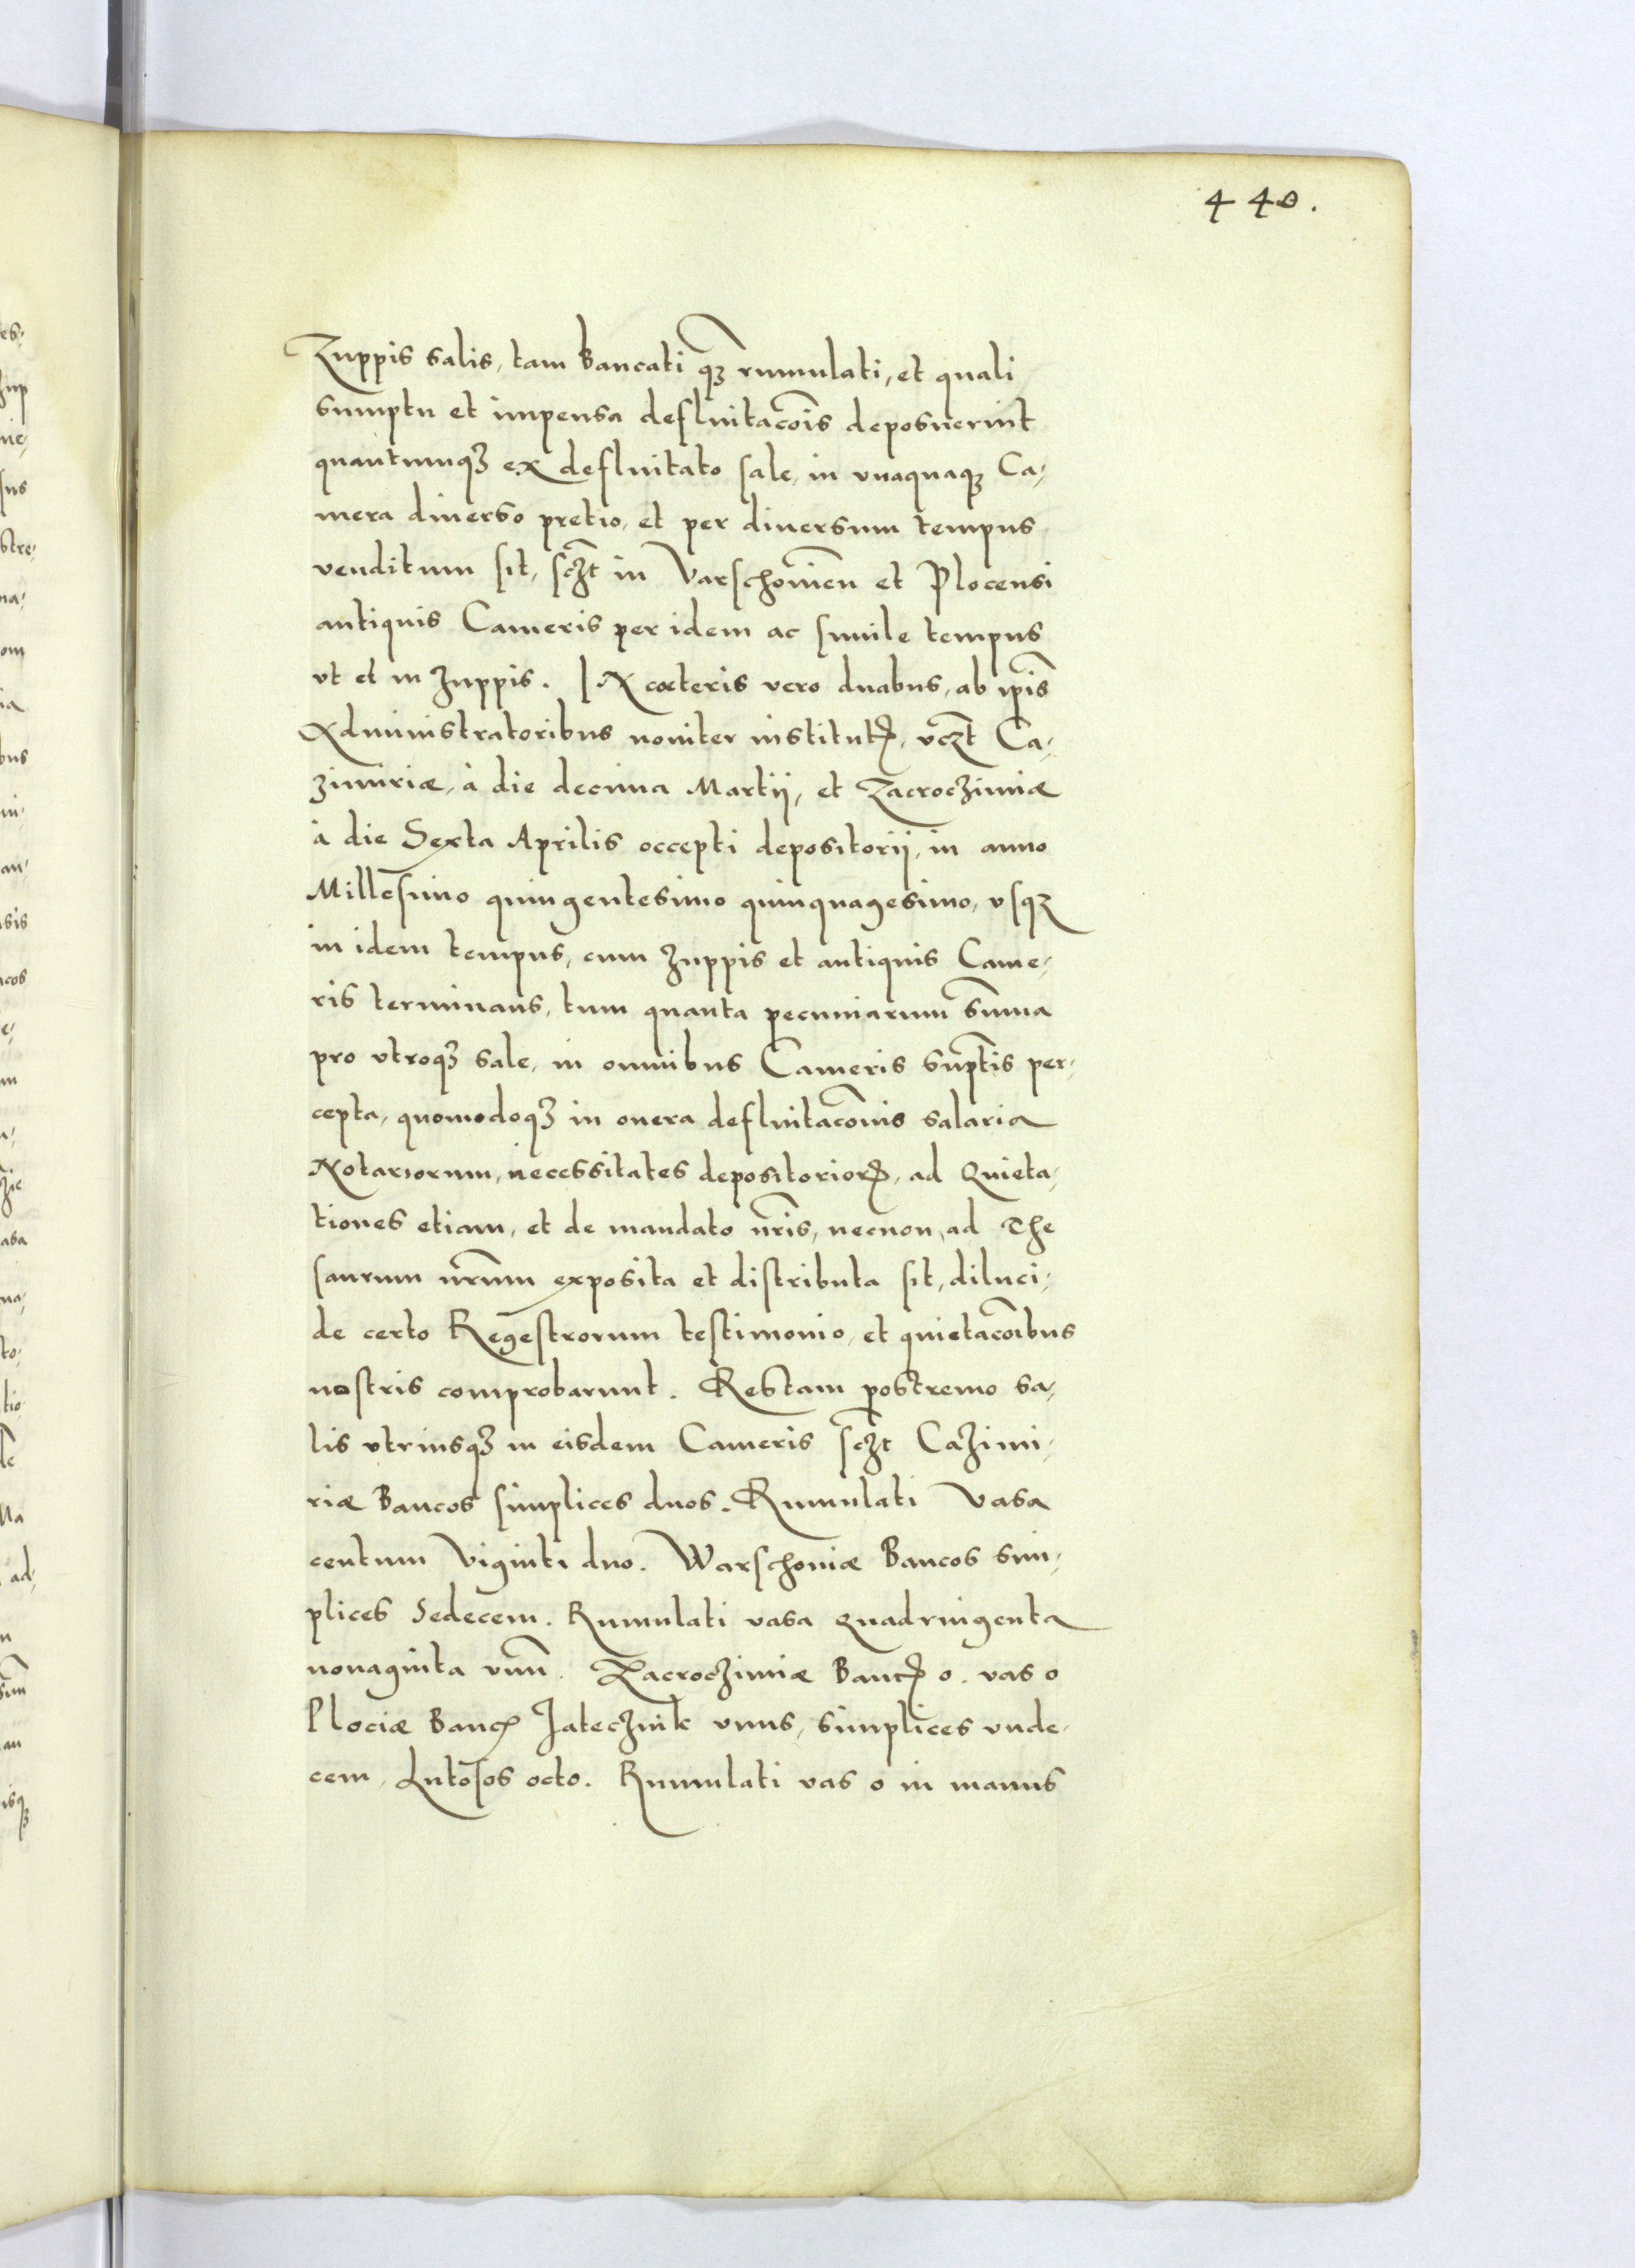 440.
Zuppis salis, tam bancati qꝫ rumulati, et quali
sumptu et impensa defluitacõis deposuerint
quantumqꝫ ex defluitato sale, in unaquaqꝫ Ca-
mera diuerso pretio, et per diuersum tempus
venditum sit, sczt in Varschouien et Plocensi
antiquis Cameris per idem ac simile tempus
vt et in zuppis. | A cæteris vero duabus, ab ip̃is
Administratoribus nouiter institutꝶ, vczt Ca-
zimiriæ, à die decima Martii, et Zacrocziniæ
à die Sexta Aprilis occepti depositorii, in anno
Millesimo quingentesimo quinquagesimo, vsqꝫ
in idem tempus, cum zuppis et antiquis Came-
ris terminans, tum quanta pecuniarum Sum̃a
pro vtroqꝫ sale, in omnibus Cameris sup̃tis per-
cepta, quomodoqꝫ in onera defluitacõnis salaria
Notariorum, necessitates depositoriorꝶ, ad Quieta-
tiones etiam, et de mandato nr̃is, necnon, ad The
saurum nr̃um exposita et distributa sit, diluci-
de certo Regestrorum testimonio, et quietacõibus
nostris comprobarunt. Restam postremo sa-
lis vtriusqꝫ in eisdem Cameris sczt Cazimi-
riæ Bancos simplices duos. Rumulati Vasa
centum Viginti duo. Warschouiæ Bancos sim-
plices Sedecem. Rumulati vasa quadringenta
nonaginta vnũ. Zacrocziniæ Bancꝶ o. vas o
Plociæ Bancꝶ Jatecznik vnus, simplices vnde-
cem, Lutosos octo. Rumulati vas o in manus